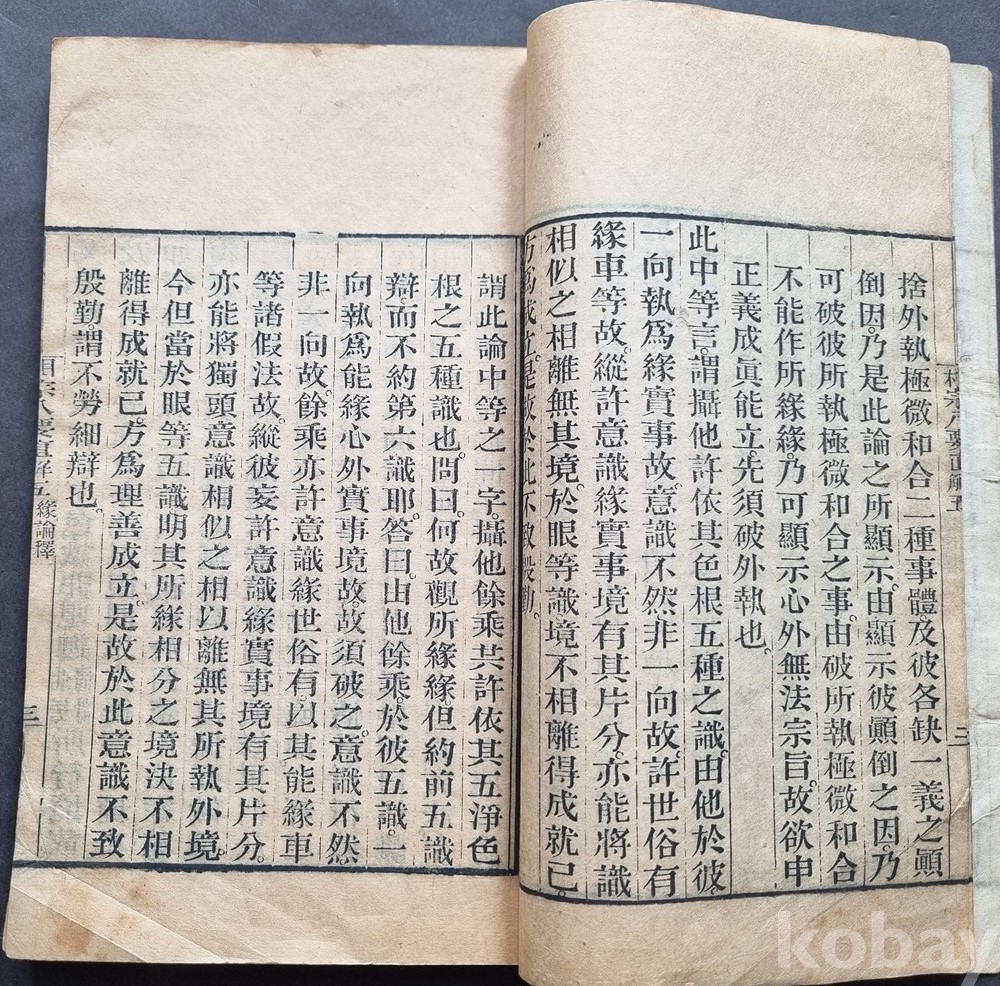 捨外執極微和合二種事體及彼各缺一義之顚
倒因。乃是此論之所顯示。由顯示彼顚倒之因。乃
可破彼所執極微和合之事。由破所執極微和合
不能作所緣緣。乃可顯示心外無法宗旨。故欲申
正義成眞能立。先須破外執也。
此中等言。謂攝他許依其色根五種之識。由他於彼。
一向執爲緣實事故。意識不然。非一向故。許世俗有
緣車等故。縱許意識緣實事境有其片分。亦能將識
相似之相離無其境。於眼等識境不相離得成就已。
方爲成立。是故於此不致殷勤。
謂此論中等之一字。攝他餘乘共許依其五淨色
根之五種識也。問曰。何故觀所緣緣。但約前五識
辯。而不約第六識耶。答曰。由他餘乘。於彼五識。一
向執爲能緣心外實事境故。故須破之。意識不然
非一向故。餘乘亦許意識緣世俗有。以其能緣車
等諸假法故。縱彼妄許意識緣實事境有其片分。
亦能將獨頭意識相似之相以離無其所執外境。
今但當於眼等五識明其所緣相分之境決不相
離得成就已。方爲理善成立。是故於此意識不致
殷勤。謂不勞細辯也。
相宗八要直解五 緣論釋
三
三
kobay